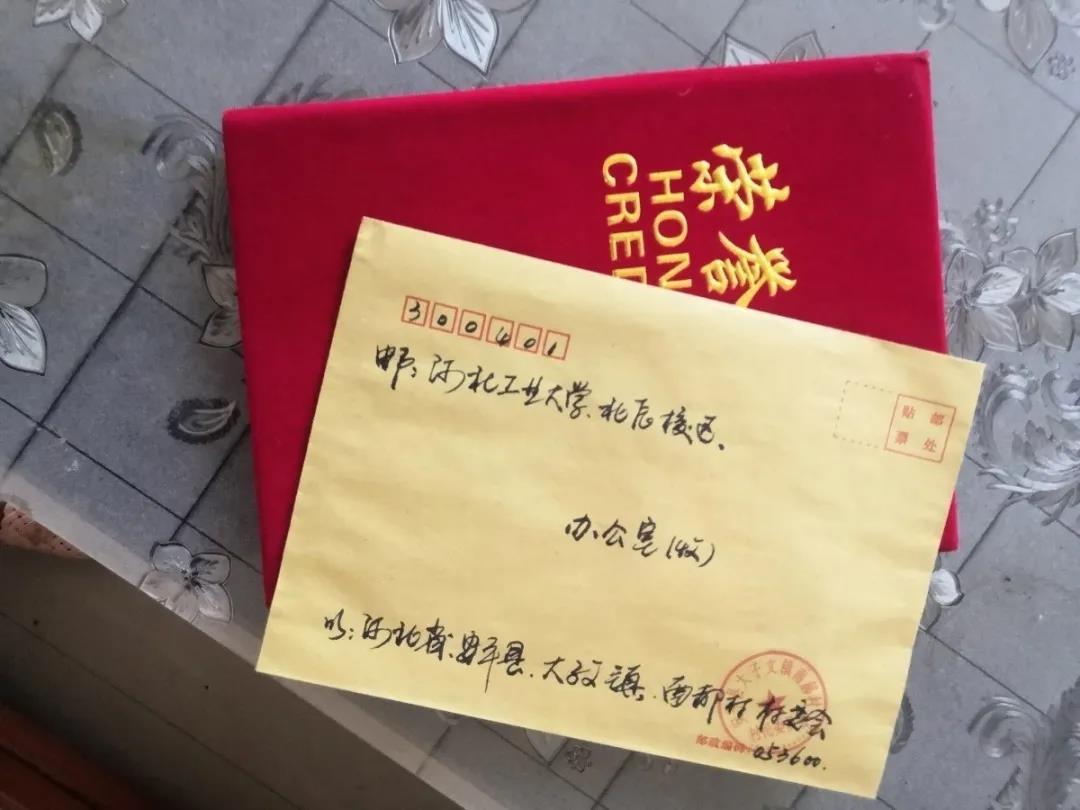 荣誉
HON
CRED
300401
邮：河北工业大学.北辰校区.
贴 邮
票 处
办公室(收)
河北省.安平县.大子文镇.西郝村村委会
邮政编码
053600.